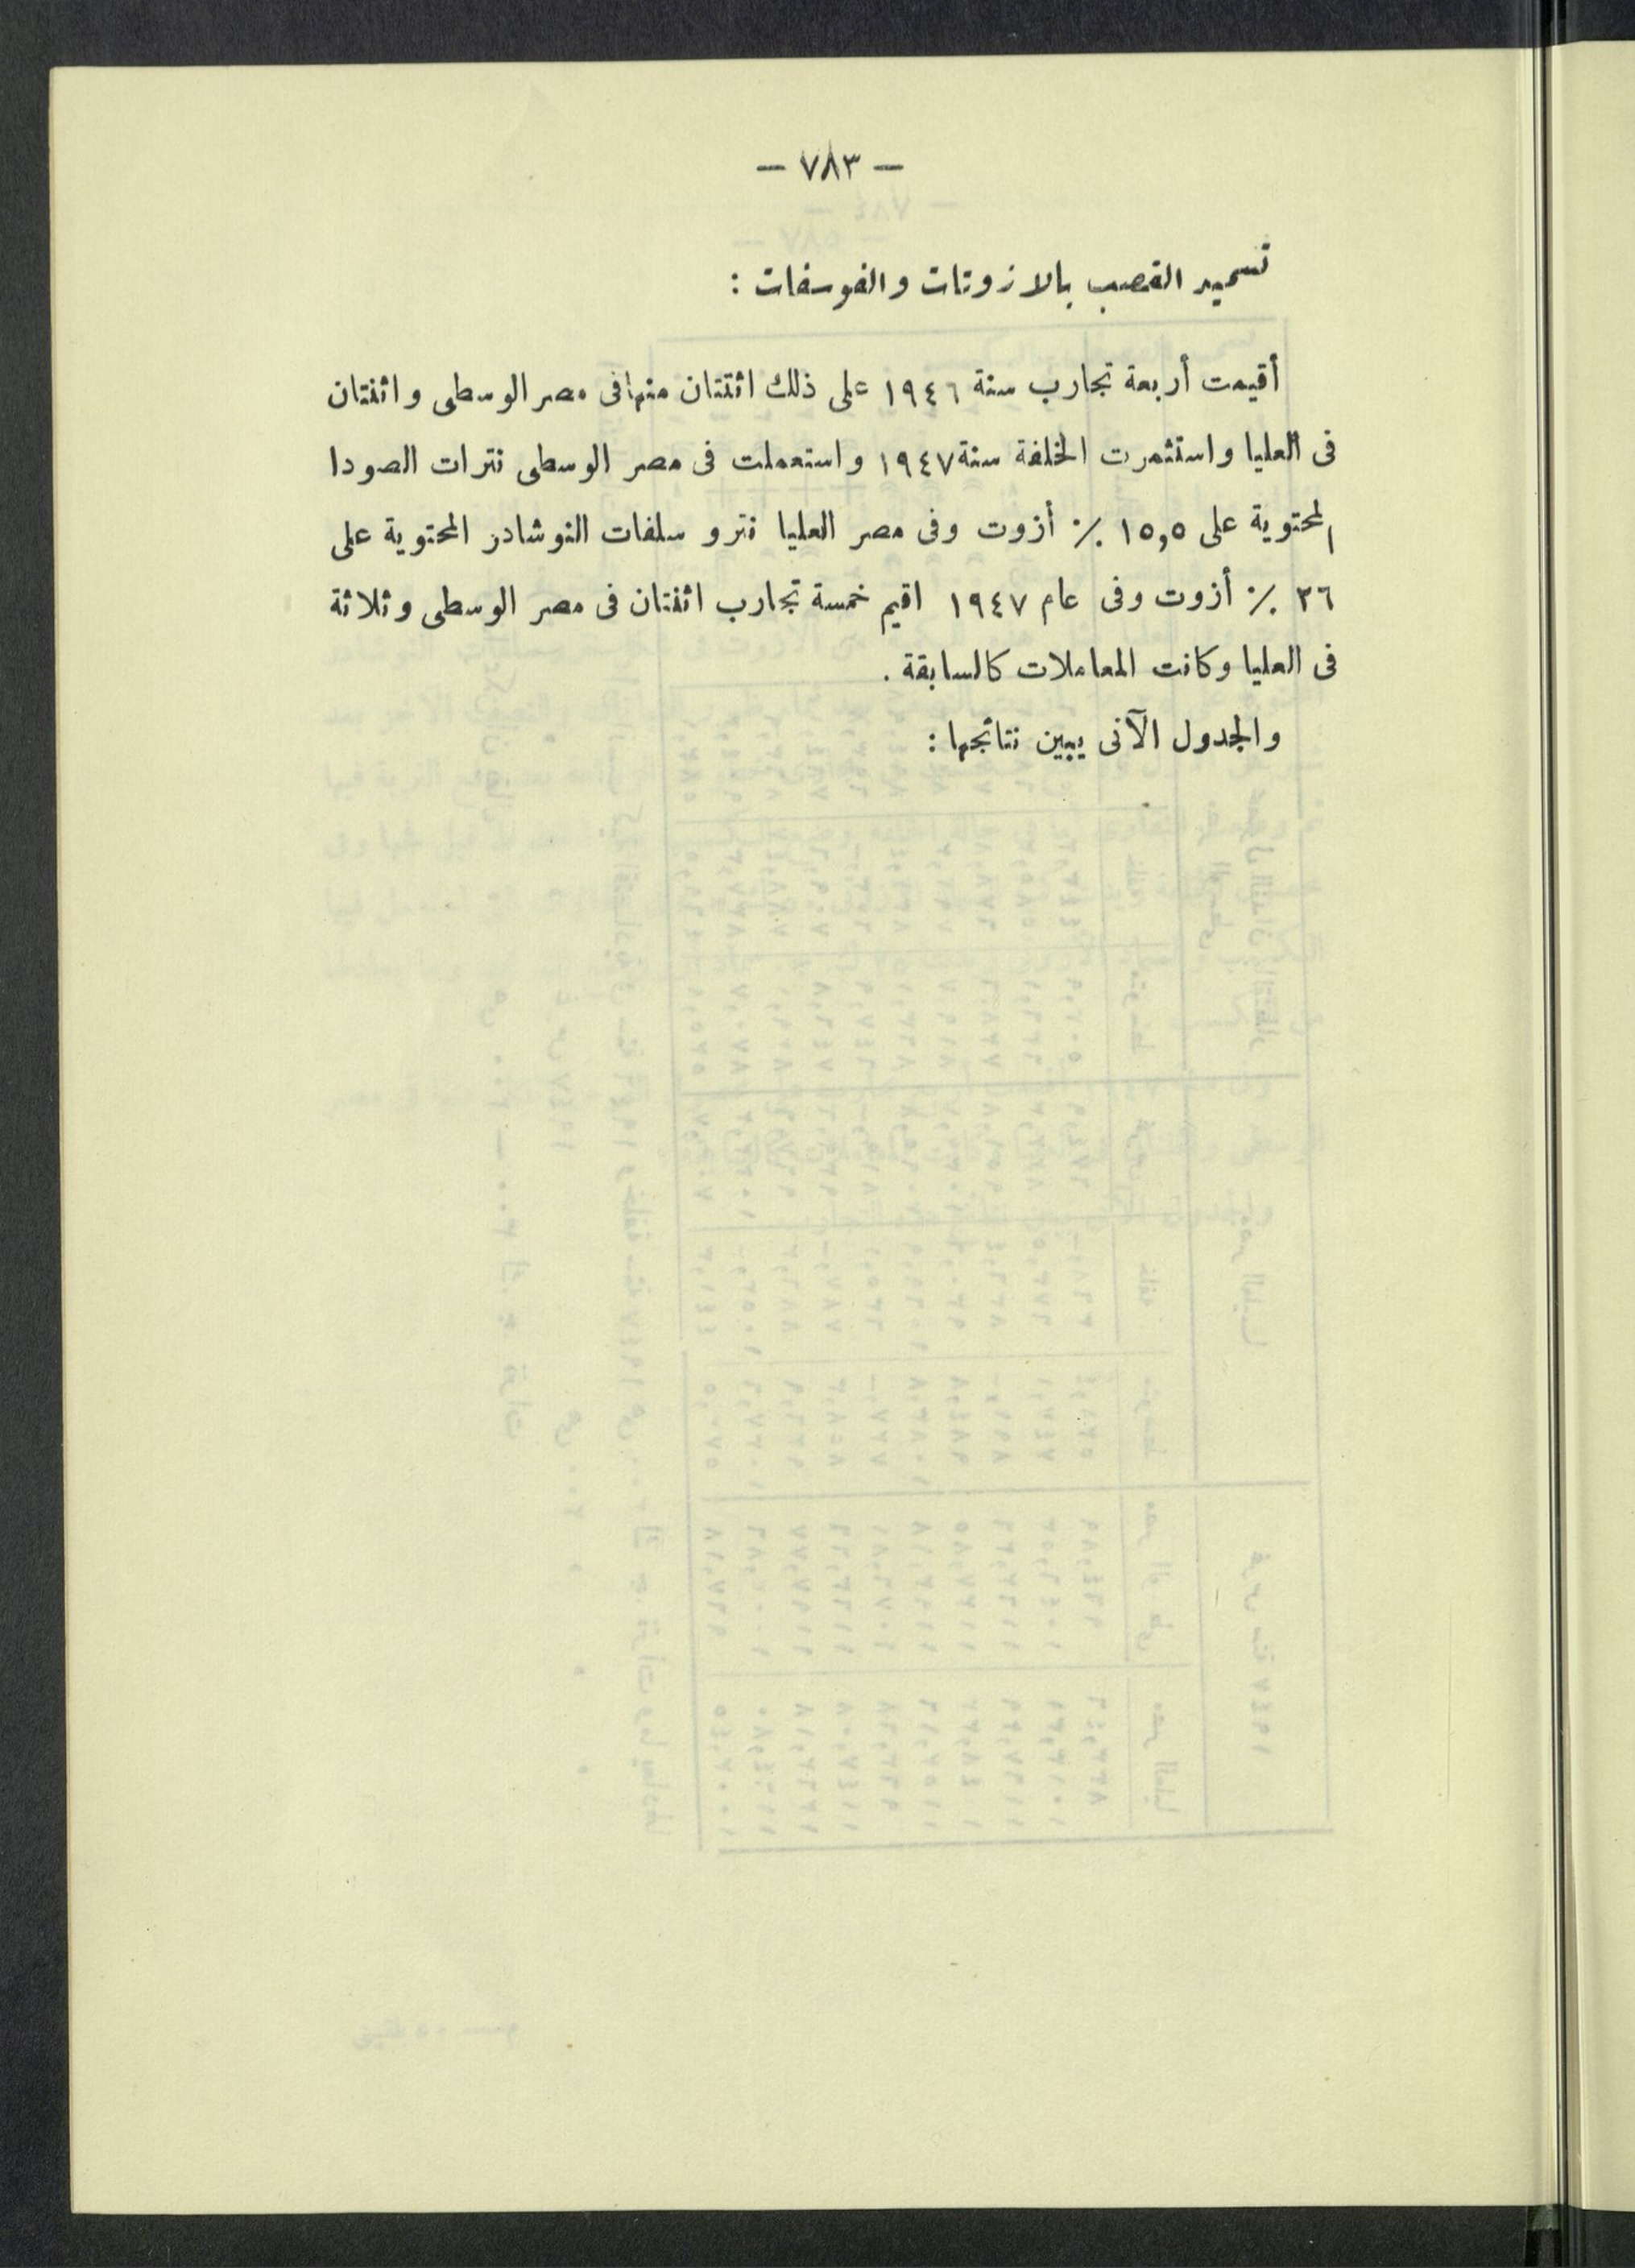 — ٧٨٣ —
تسميد القصب بالازوتات والفوسفات :
أقيمت أربعة تجارب سنة ١٩٤٦ على ذلك اثنتان منها فى مصر الوسطى واثنتان
فى العليا واستثمرت الخلفة سنة ١٩٤٧ واستعملت فى مصر الوسطى نترات الصودا
المحتوية على ١٥,٥ ٪ أزوت وفى مصر العليا نترو سلفات النوشادر المحتوية على
٢٦ ٪ أزوت وفى عام ١٩٤٧ اقيم خمسة تجارب اثنتان فى مصر الوسطى وثلاثة
فى العليا وكانت المعاملات كالسابقة .
والجدول الآتى يبين نتائجها :